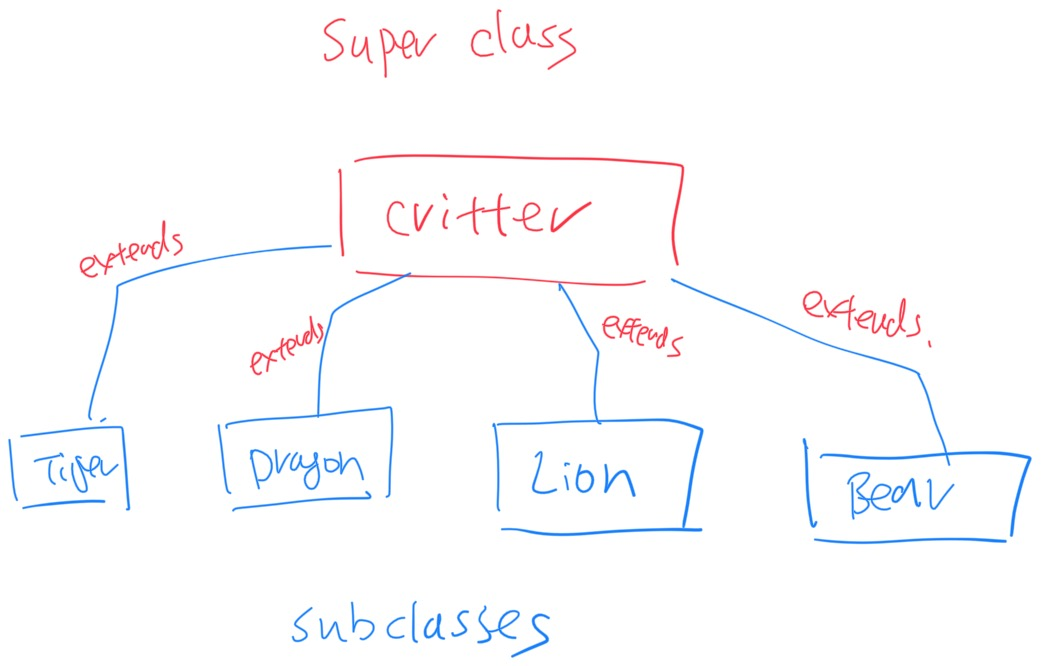 Super class
critter
extends
extends
extends
extends.
Tiger
Dragon
Lion
Bear
subclasses